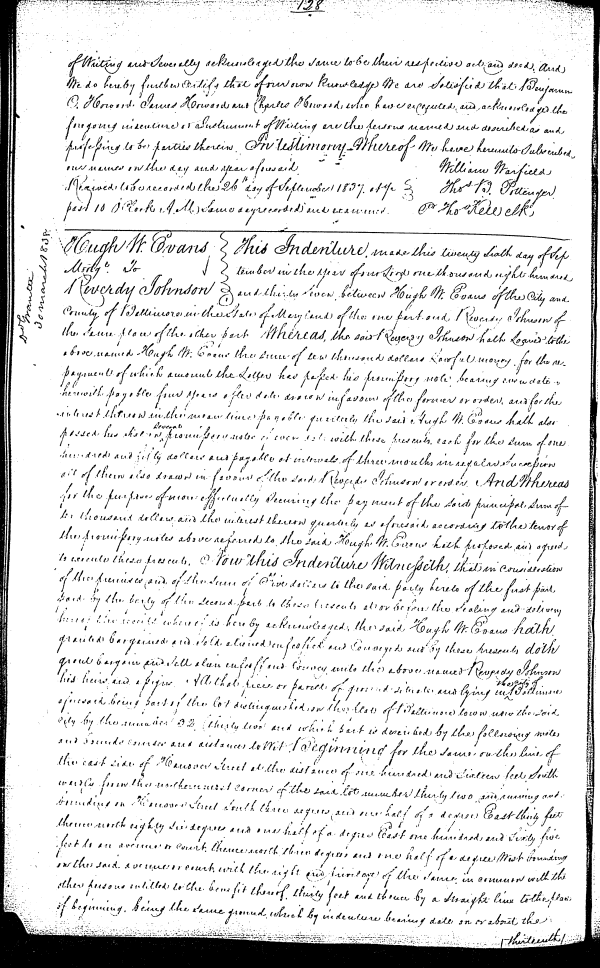 128
of Writing and Severally acknowledged the same to be their respective act and deed. And
We do hereby further Certify that of our own knowledge We are Satisfied that Benjamin
C. Howard James Howard and Charles Howard who have executed and acknowledged the
foregoing indenture or Instrument of Writing are the persons named and described as and
professing to be parties therein. In testimony Whereof We have hereunto Subscribed
our names on the day and year aforesaid
William Warfield
Received to be recorded the 26th day of September 1837 at
past 10 O'Clock A.M. Same day recorded and examined
Thos B. Pottenger
Pr Thos Kell clk
Hugh W. Evans
Mortge To
Reverdy Johnson
Dd Grantee
30 March 1838
This Indenture, made this twenty sixth day of Sep
tember in the Year of our Lord one thousand eight hundred
and thirty seven, between Hugh W. Evans of the City and
County of Baltimore in the State of Maryland of the one part and Reverdy Johnson of
the same place of the other part Whereas, the said Reverdy Johnson hath Loaned to the
above named Hugh W. Evans the sum of ten thousand dollars Lawful money, for the re-
payment of which amount the Latter has passed his promissory note bearing even date
herewith payable four years after date drawn in favour of the former or order, and for the
interest thereon in the mean time payable quarterly the said Hugh W. Evans hath also
passed his several promissory notes of even date with these presents, each for the sum of one
hundred and fifty dollars and payable at intervals of three months in regular Succession
all of them also drawn in favour of the said Reverdy Johnson or order. And Whereas
for the purpose of more effectually Securing the payment of the said principal sum of
ten thousand dollars, and the interest thereon quarterly as aforesaid according to the tenor of
the promissory notes above referred to, the said Hugh W. Evans hath proposed and agreed
to execute these presents. Now this Indenture Witnesseth, that in consideration
of the premises, and of the Sum of Five dollars to the said party hereto of the first part,
paid by the party of the second part to these presents at or before the Sealing and delivery
hereof the receipt whereof is hereby acknowledged, the said Hugh W. Evans hath
granted bargained and sold aliened enfeoffed and Conveyed and by these presents doth
grant bargain and Sell alien enfeoff and Convey unto the above named Reverdy Johnson
his heirs and assigns All that piece or parcel of ground situate and lying in the City of Baltimore
aforesaid being part of the lot distinguished on the plat of Baltimore town now the said
City by the number 32 (thirty two) and which part is described by the following metes
and bounds courses and distances to Wit, Beginning for the same on the line of
the east side of Hanover Street at the distance of one hundred and Sixteen feet South
wardly from the northernmost corner of the said lot number thirty two and running and
bounding on Hanover Street South three degrees and one half of a degree East thirty feet
thence north eighty six degrees and one half of a degree East one hundred and Sixty five
feet to an avenue or court, thence north three degrees and one half of a degree West bounding
on the said avenue or court, with the right and privilege of the same in common with the
other persons entitled to the benefit thereof, thirty feet and thence by a straight line to the place
of beginning. being the same ground, which by indenture bearing date on or about the
(thirteenth)